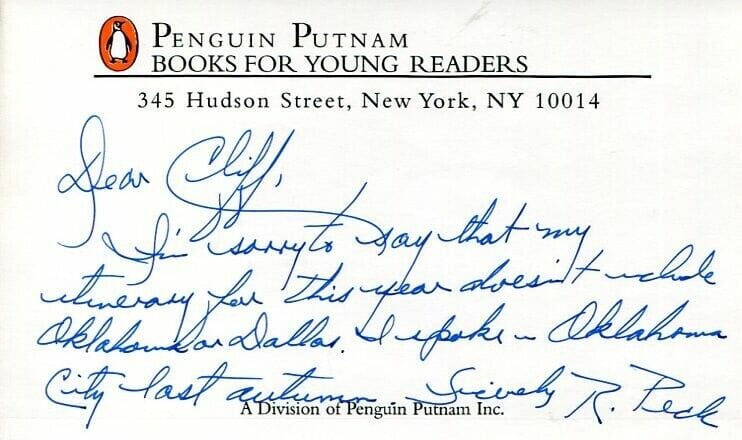 PENGUIN PUTNAM
BOOKS FOR YOUNG READERS
345 Hudson Street, New York, NY 10014
Dear Cliff,
I'm sorry to say that my
itinerary for this year doesn't include
Oklahoma or Dallas. I spoke in Oklahoma
City last autumn. Sincerely R. Peck
A Division of Penguin Putnam Inc.